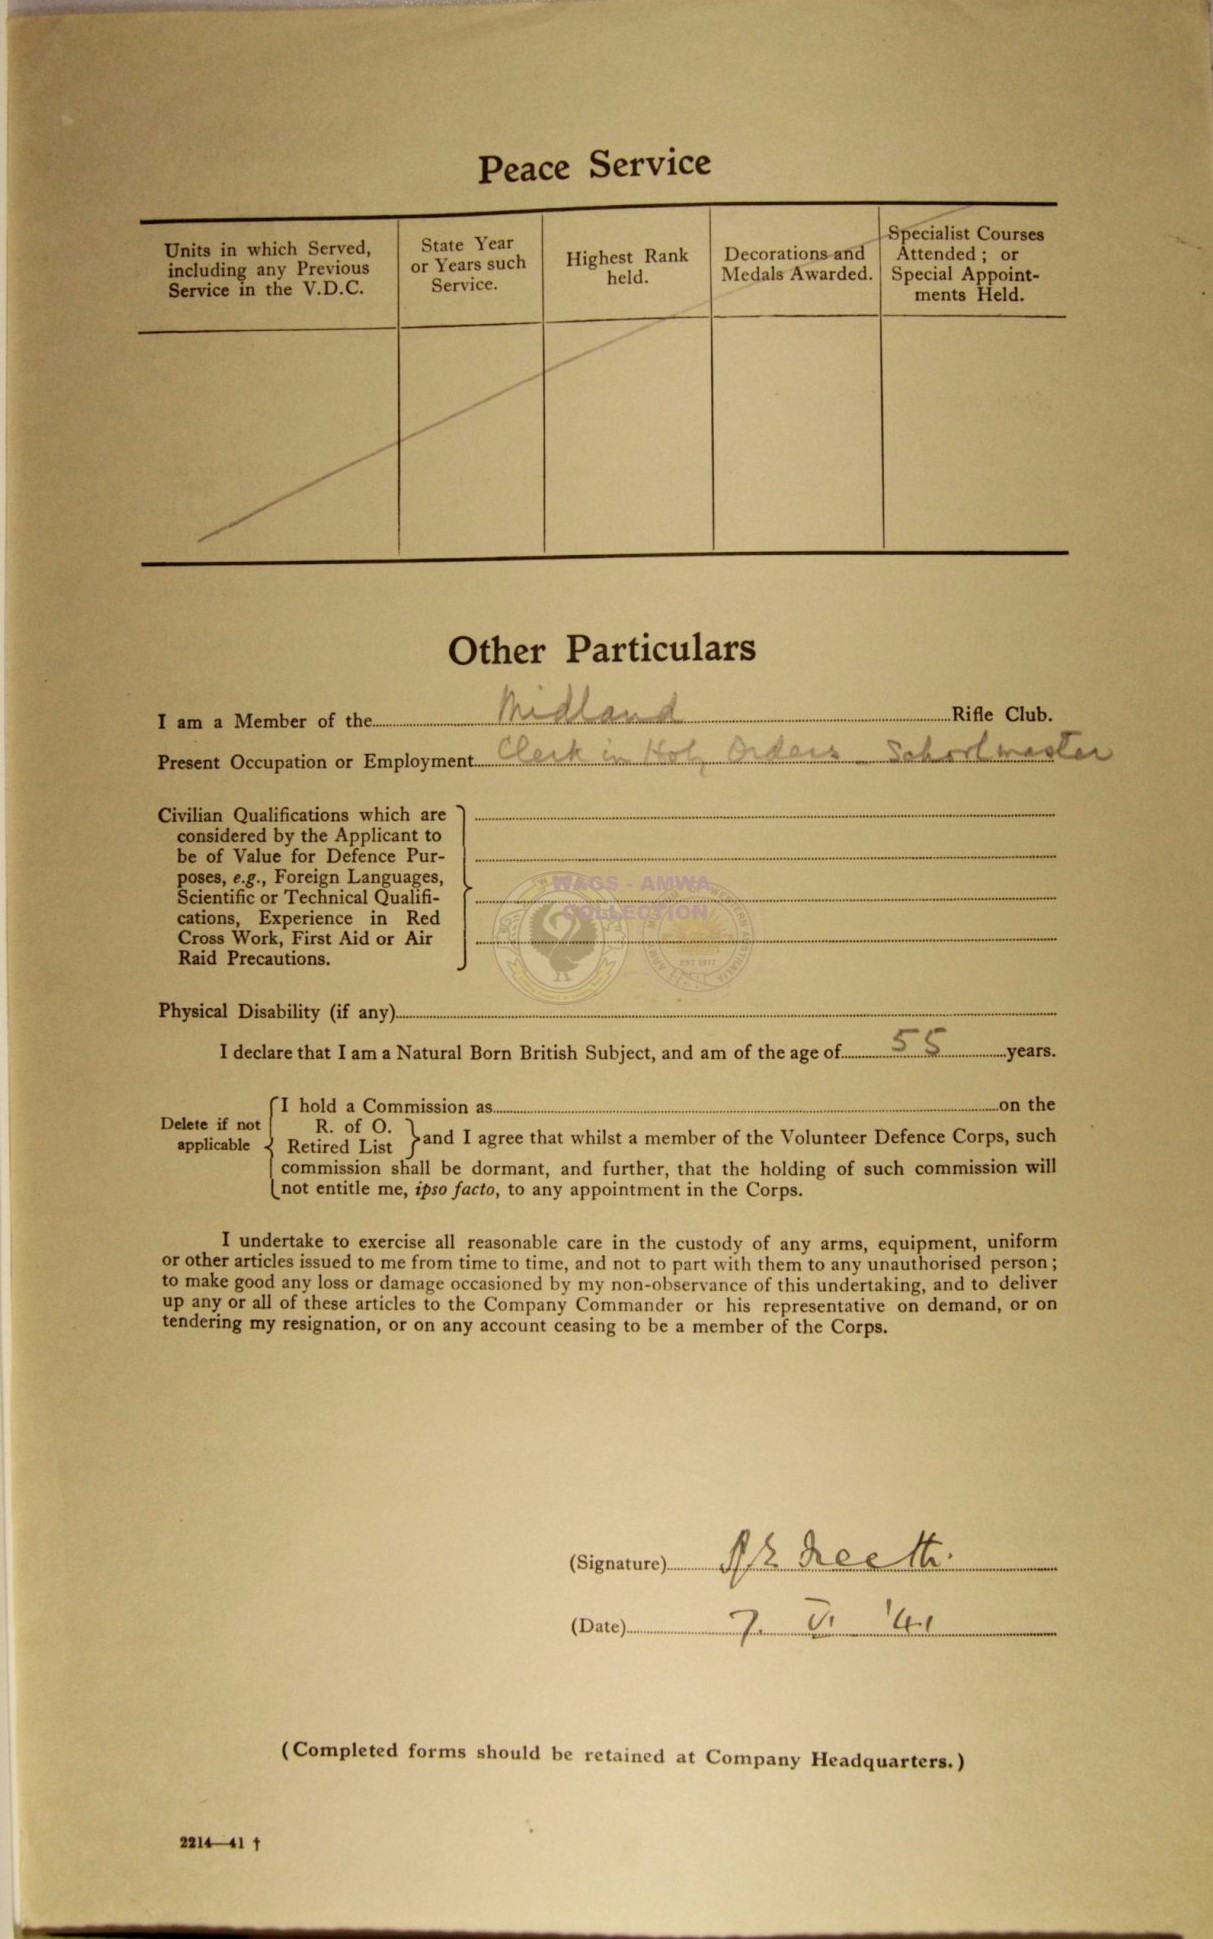 Peace Service
Units in which Served, including any Previous Service in the V.D.C.
State Year or Years such Service.
Highest Rank held.
Decorations and Medals Awarded.
Specialist Courses Attended ; or Special Appoint-ments Held.
Other Particulars
I am a Member of the Midland Rifle Club.
Present Occupation or Employment Clerk in Holy Orders - Schoolmaster
Civilian Qualifications which are
considered by the Applicant to
be of Value for Defence Pur-
poses, e.g., Foreign Languages,
Scientific or Technical Qualifi-
cations, Experience in Red
Cross Work, First Aid or Air
Raid Precautions.
WAGS - AMWA
COLLECTION
Physical Disability (if any)
I declare that I am a Natural Born British Subject, and am of the age of 55 years.
Delete if not applicable
I hold a Commission as on the
R. of O.
Retired List } and I agree that whilst a member of the Volunteer Defence Corps, such
commission shall be dormant, and further, that the holding of such commission will
not entitle me, ipso facto, to any appointment in the Corps.
I undertake to exercise all reasonable care in the custody of any arms, equipment, uniform
or other articles issued to me from time to time, and not to part with them to any unauthorised person ;
to make good any loss or damage occasioned by my non-observance of this undertaking, and to deliver
up any or all of these articles to the Company Commander or his representative on demand, or on
tendering my resignation, or on any account ceasing to be a member of the Corps.
(Signature) R E Freeth.
(Date) 7. VI '41
(Completed forms should be retained at Company Headquarters.)
2214—41 †